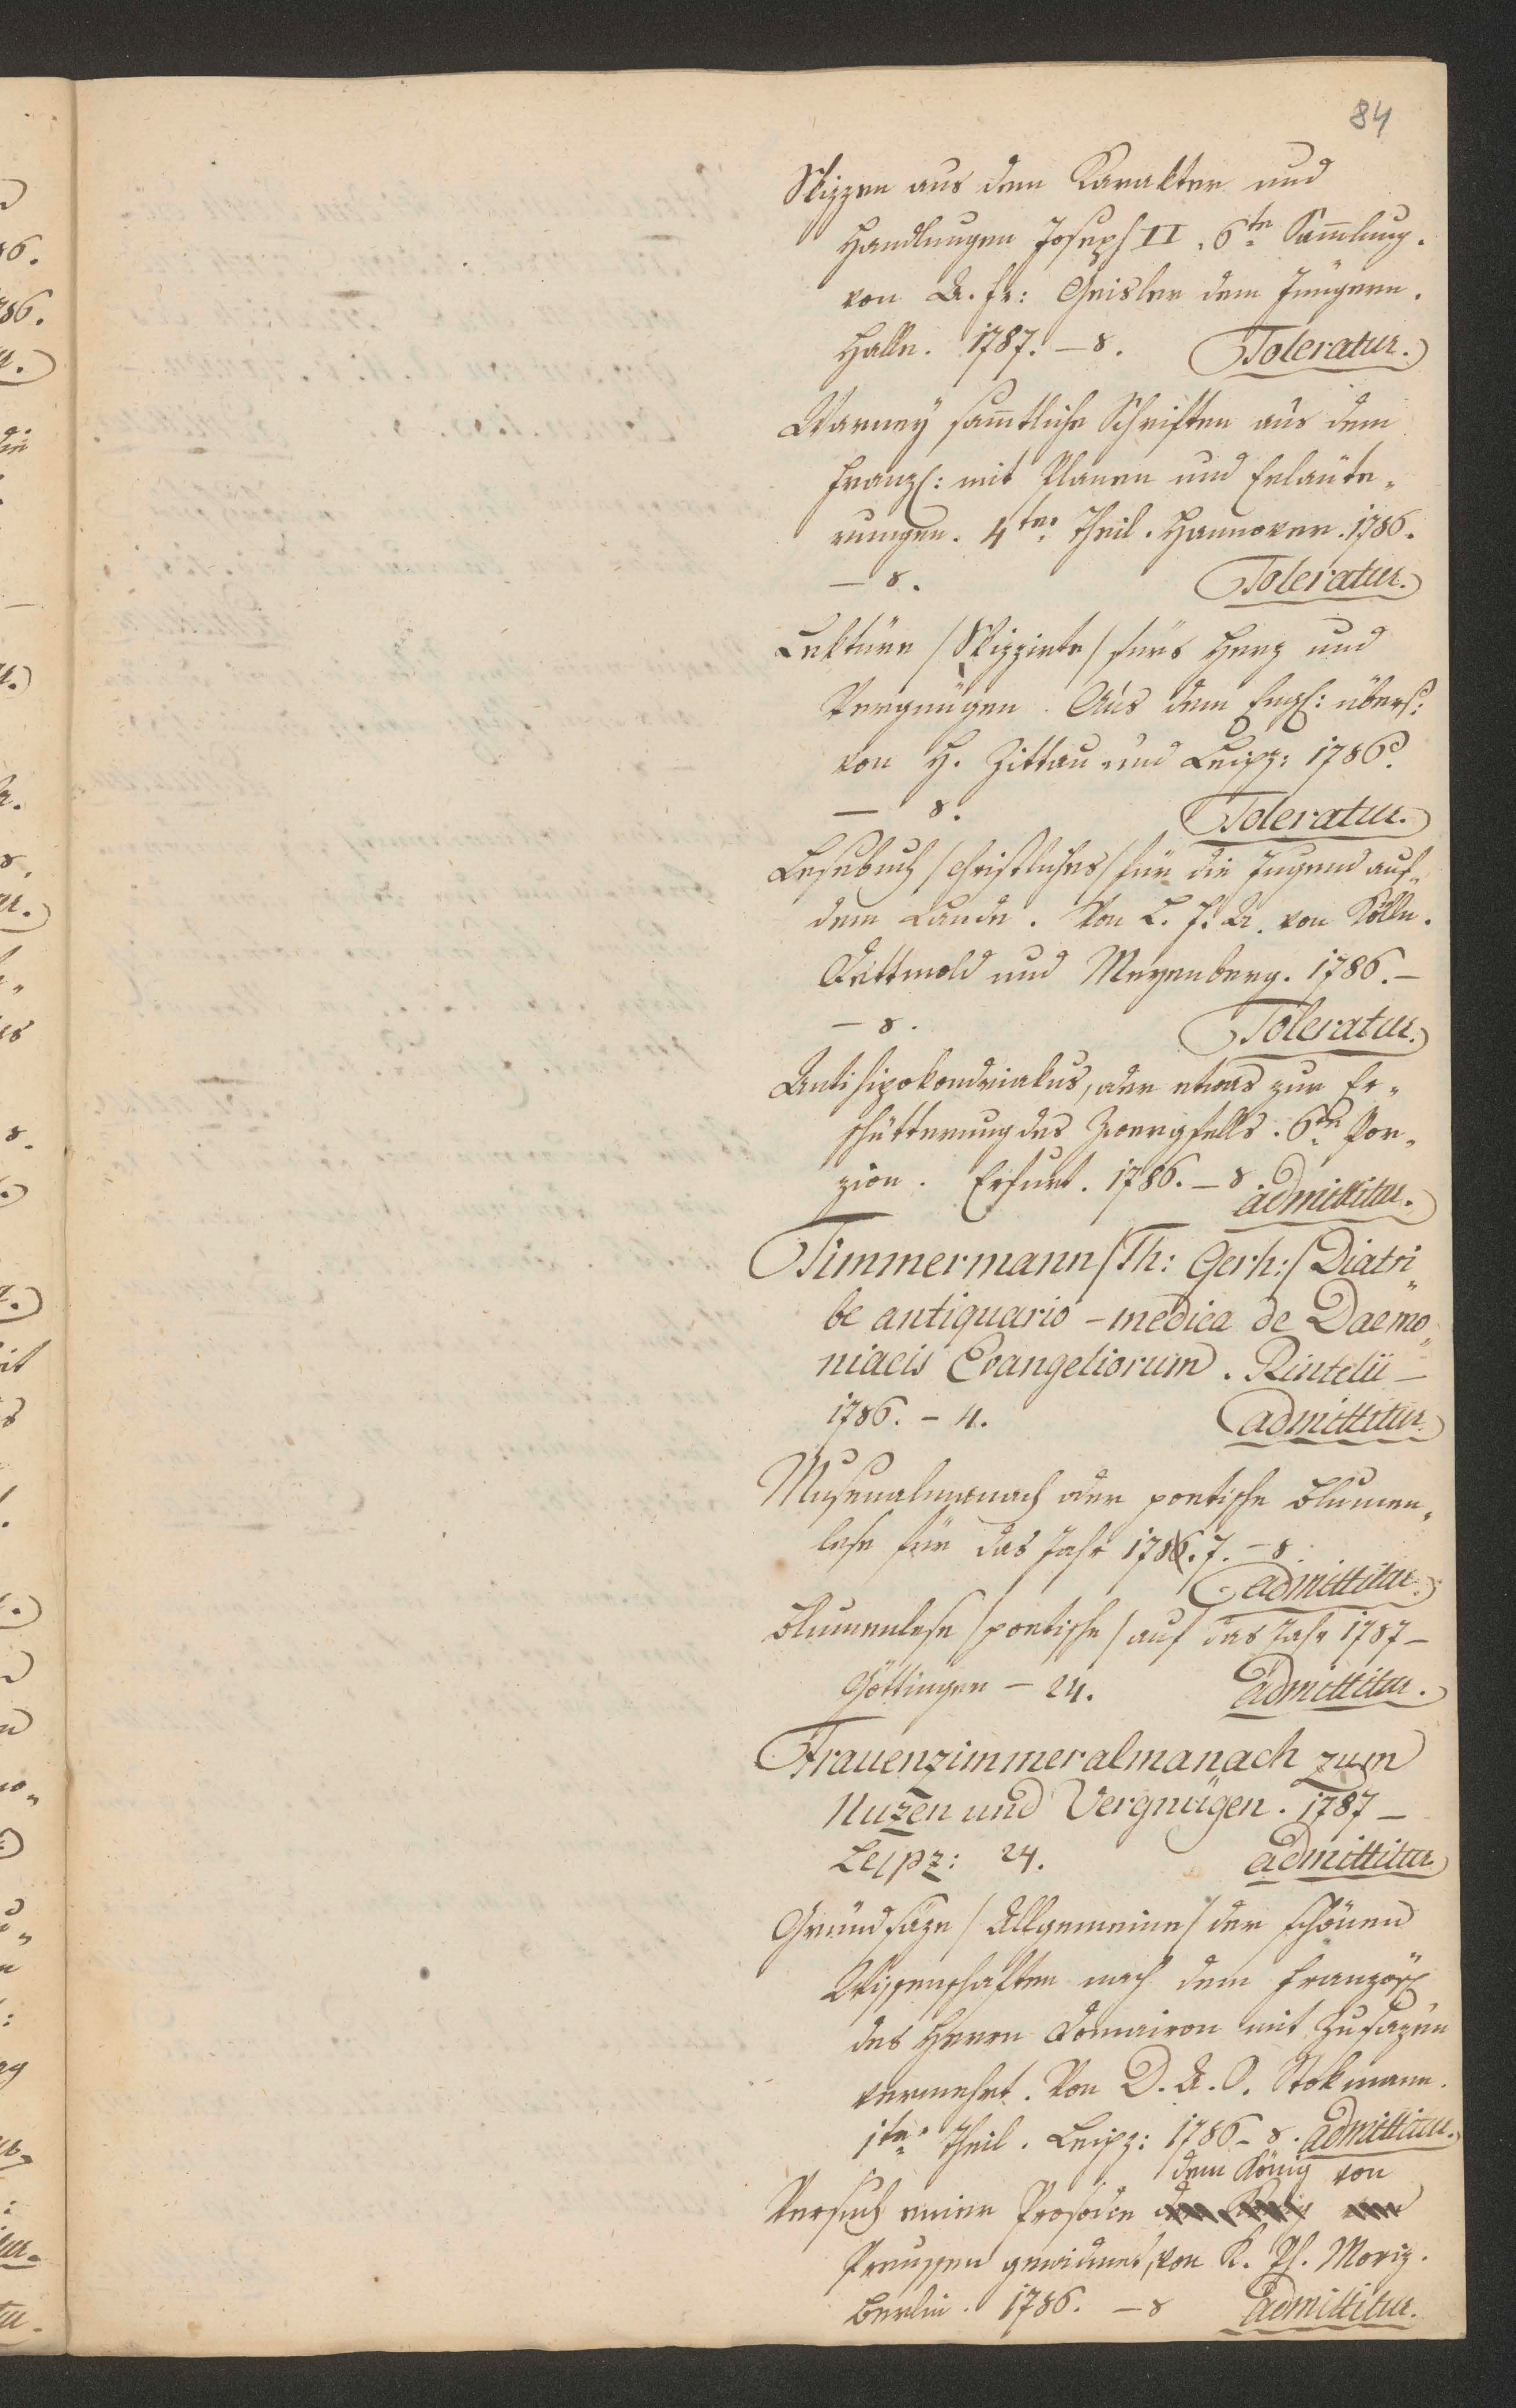 84
Skizzen aus dem Karakter und
Handlungen Joseph II. 6te Sammlung.
von A. Fr: Geisler dem Jüngern.
Halle. 1787. – 8. Toleratur.
Warney sammtliche Schriften aus dem
Franz: mit Planen und Erläute„
rungen. 4ter Theil. Hannover. 1786.
– 8. Toleratur.
Lektüre /Skizzirte/ fürs Herz und
Vergnügen. Aus dem Engl: übers:
von H. Zittau und Leipz: 1786.
– 8. Toleratur.
Lesebuch /christliches/ für die Jugend auf
dem Lande. Von L. F. A. von Cölln.
Dettmold und Meyenberg. 1786. –
– 8. Toleratur.
Antihipokondriakus, oder etwas zur Er„
schütterung des Zwergfells. 6te Por„
zion. Erfurt. 1786. – 8. admittitur.
Timmermann /Th: Gerh:/ Diatri„
be antiquario – medica de Daemo„
niacis Evangeliorum. Rintelii –
1786. – 4. admittitur.
Musenalmanach oder poetische Blumen„
lese für das Jahr 1786.7. – 8.
admittitur.
Blumenlese /poetische/ auf das Jahr 1787 –
Göttingen – 24. admittitur.
Frauenzimmeralmanach zum
Nuzen und Vergnügen. 1787 –
Leipz: 24. admittitur.
Grundsäze /Allgemeine/ der schönen
Wissenschaften nach dem Französ:
des Herrn Domairon mit Zusäzen
vermehrt. Von D. A. C. Stokmann.
1ter Theil. Leipz: 1786 – 8. admittitur.
dem König von
Versuch einer Prosodie
Preussen gewidmet, von K. Ph. Moriz.
Berlin. 1786. – 8 admittitur.